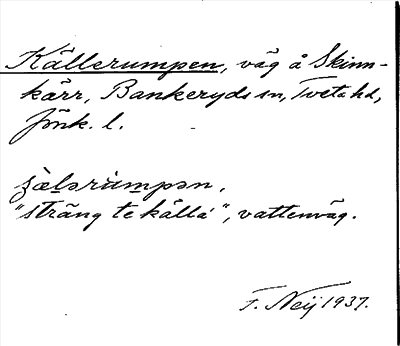 Källerumpen, väg å Skinn-
kärr, Bankeryds sn, Tveta hd,
Jönk. l.
"sträng te källá", vattenväg.
F. Neij 1937.